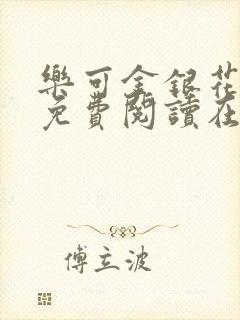 樂可金銀花
免費閱讀在
傅立波